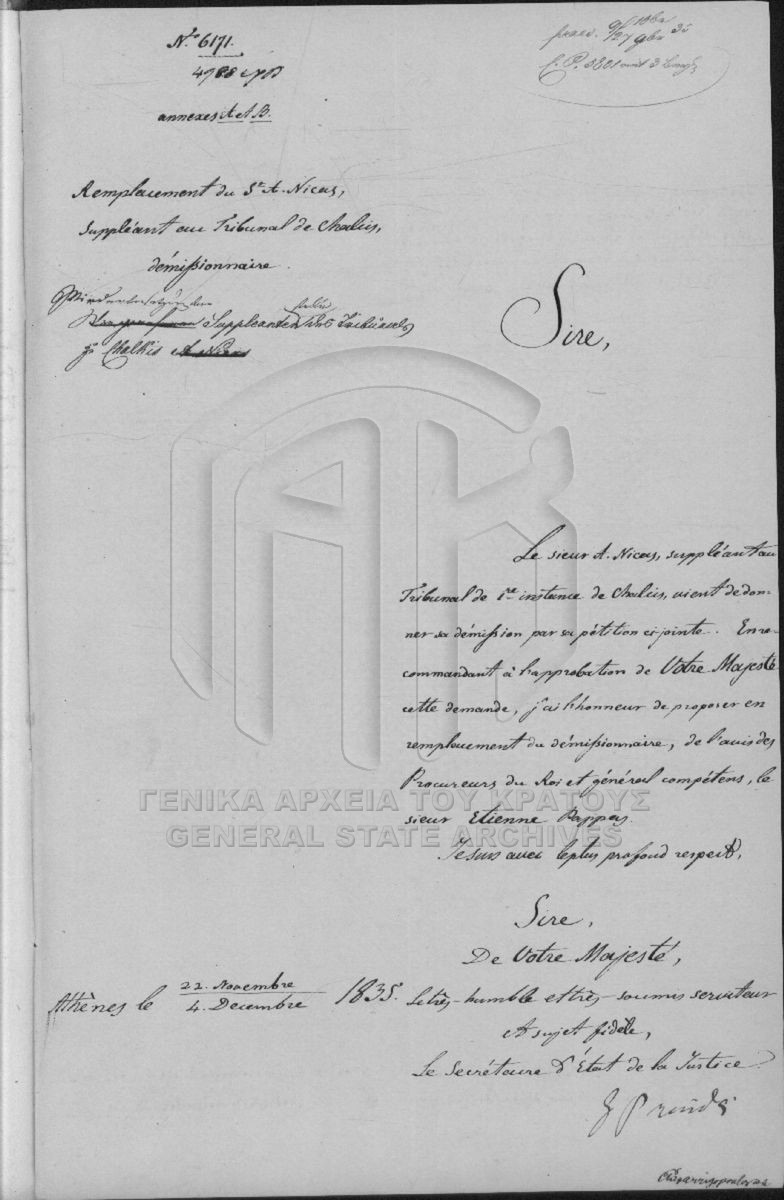 N.º 6171.
4988
annexes A et B.
Remplacement du Sr. A. Nicas,
Suppléant au Tribunal de Chalcis,
démissionnaire.
Suppleanten des Tribunals
zu Chalkis
Sire,
Le sieur A. Nicas, suppléant au
Tribunal de 1re instance de Chalcis, vient de don-
ner sa démission par sa pétition ci-jointe. En re-
commandant à l'approbation de Votre Majesté
cette demande, j'ai l'honneur de proposer en
remplacement du démissionnaire, de l'avis des
Procureurs du Roi et général compétens, le
sieur Etienne Pappas.
ΓΕΝΙΚΑ ΑΡΧΕΙΑ ΤΟΥ ΚΡΑΤΟΥΣ
GENERAL STATE ARCHIVES
Je suis avec le plus profond respect,
Sire,
De Votre Majesté,
Athènes le 22. Novembre / 4. Decembre 1835.
Le très-humble et très-soumis serviteur
et sujet fidèle,
Le Secrétaire d'État de la Justice